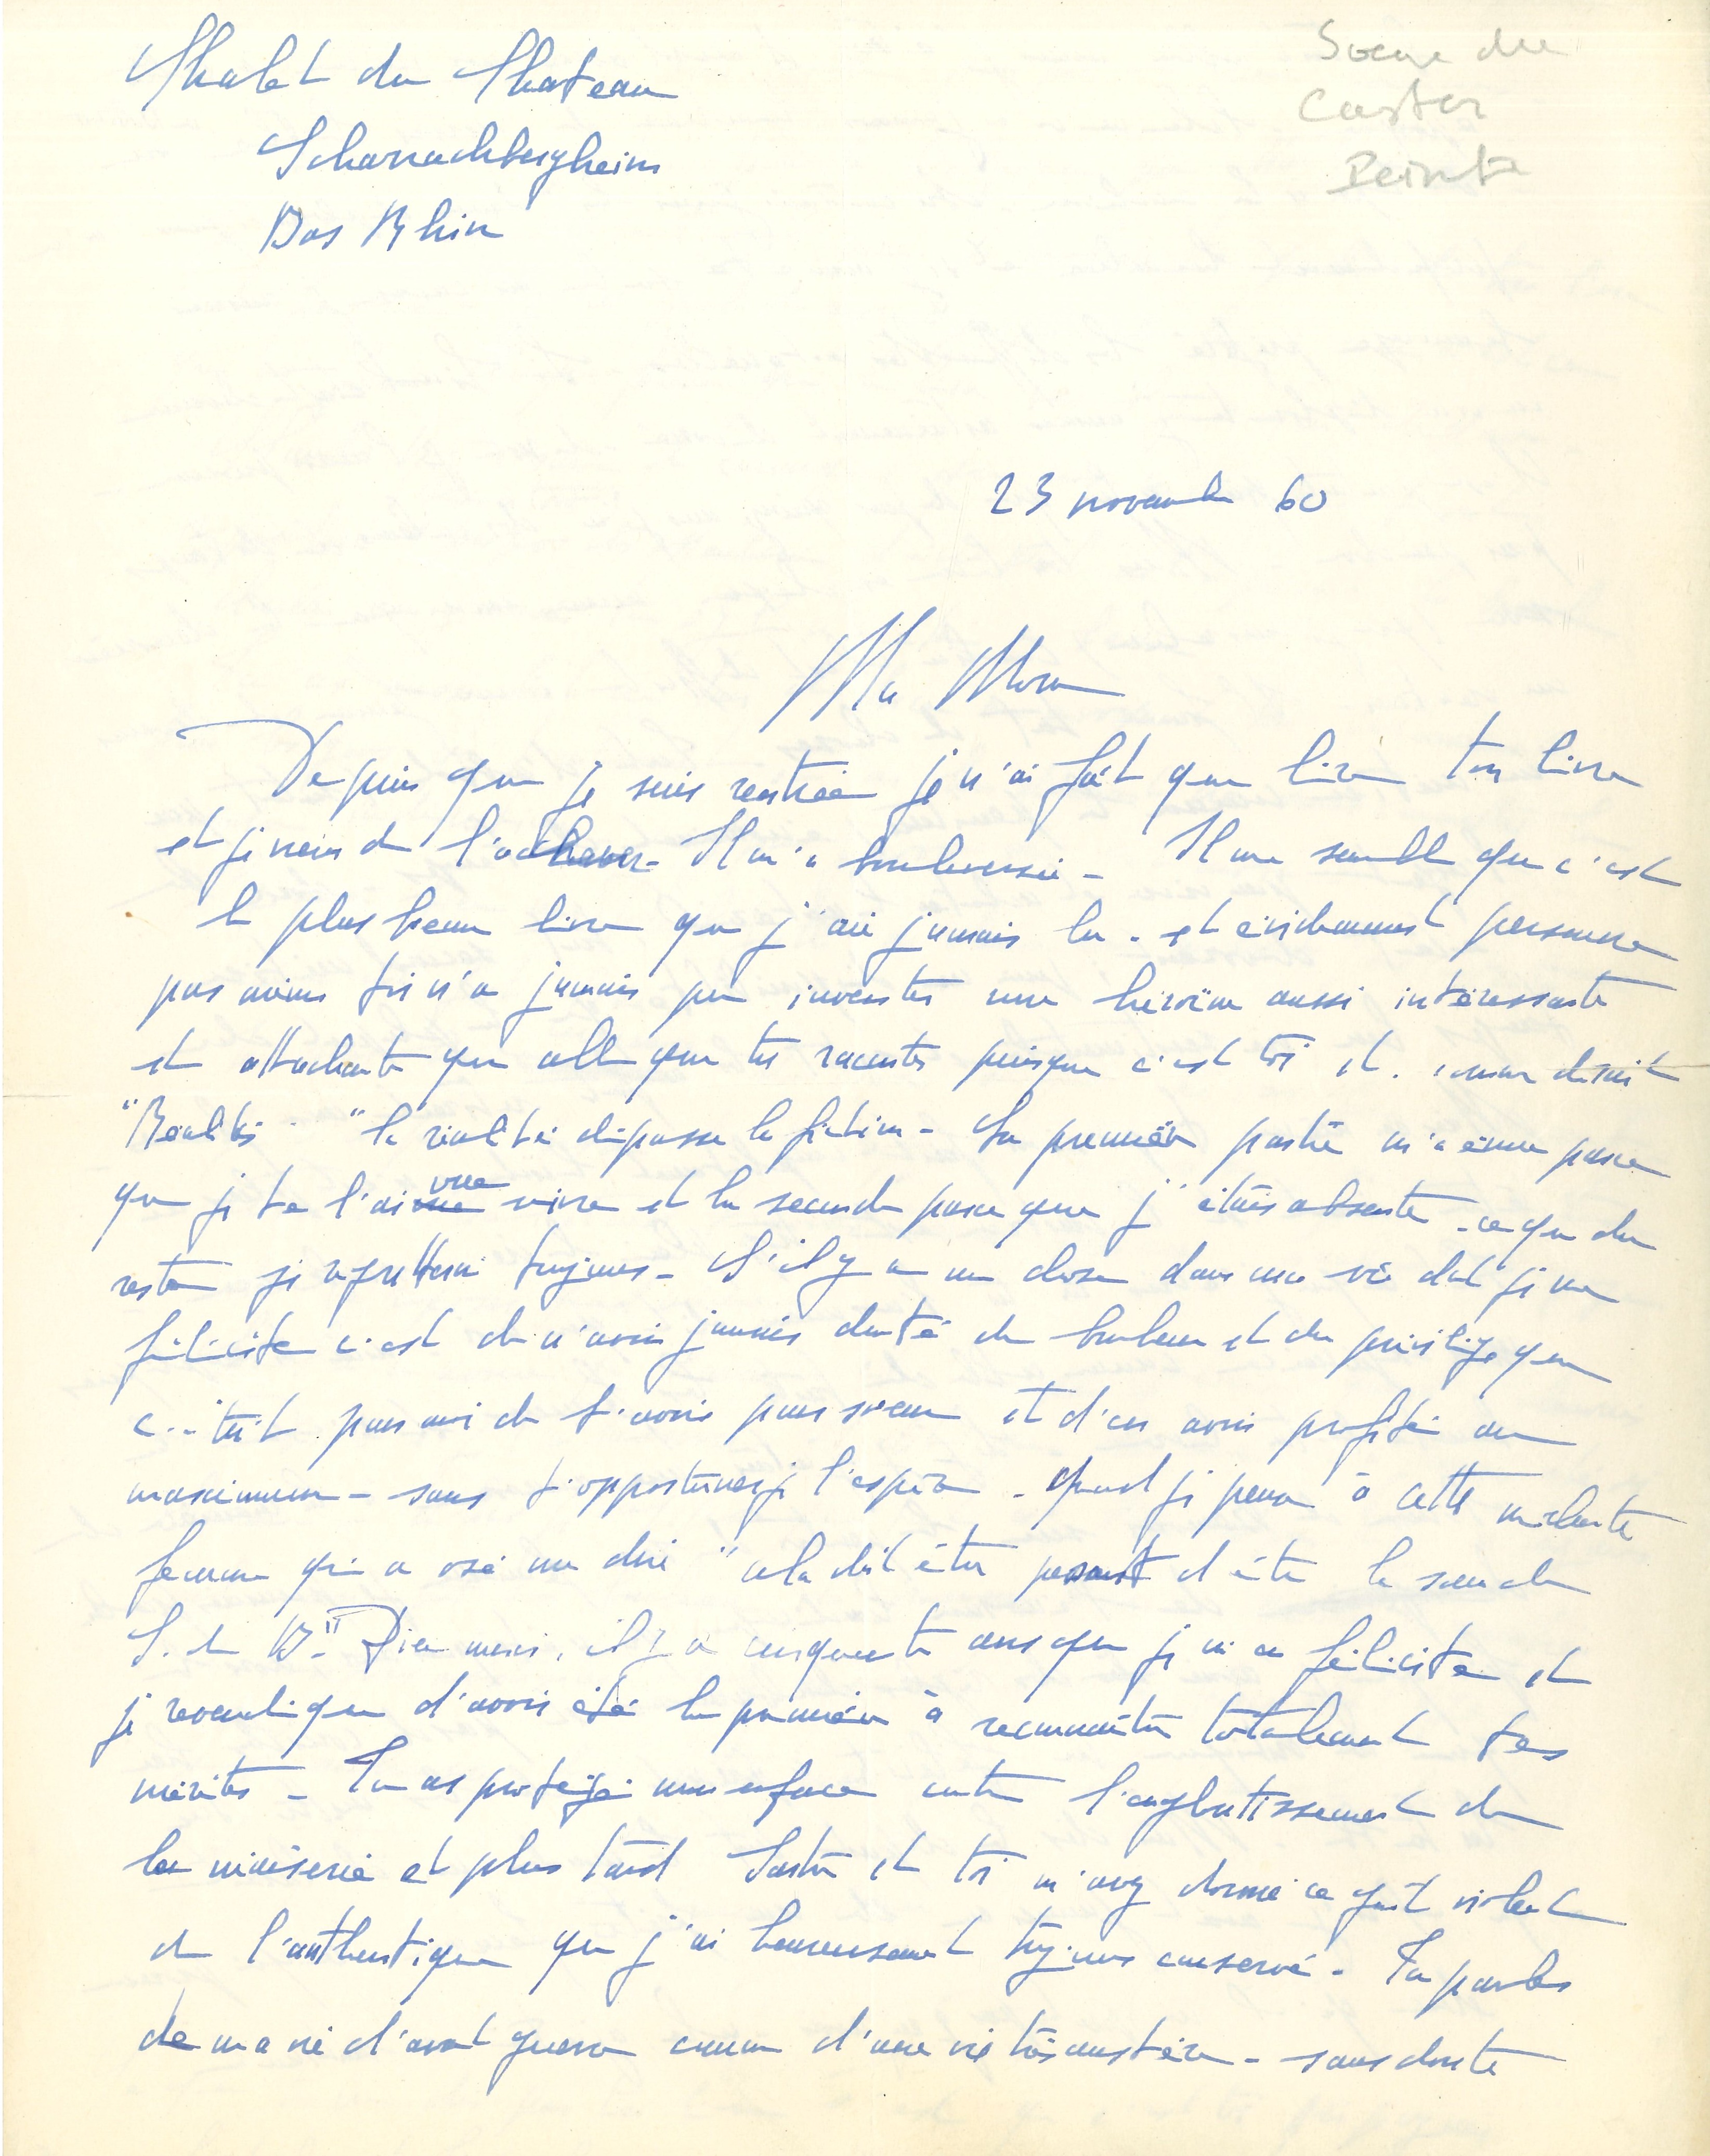 Chalet du Chateau
Soeur du
Castor
Peintre
Scharrachbergheim
Bas Rhin
23 novembre 60
Ma
Depuis que je suis rentrée je n'ai fait que lire ton livre
et je viens de l'achever - Il m'a bouleversée - Il me semble que c'est
le plus beau livre que j'ai jamais lu - et évidemment personne
pas même toi n'a jamais pu inventer une héroïne aussi intéressante
et attachante que celle que tu racontes puisque c'est toi et, comme disait
"Réalités" "la réalité dépasse la fiction - La première partie m'a émue parce
que je te l'ai vue vivre et la seconde parce que j'étais absente - ce que du
reste je regretterai toujours - S'il y a une chose dans ma vie dont je me
félicite c'est de n'avoir jamais douté du bonheur et du privilège que
c'était pour moi de t'avoir pour soeur et d'en avoir profité au
maximum - sans t'importuner je l'espère - Quand je pense à cette méchante
femme qui a osé me dire "cela doit être pesant d'être la soeur de
S. de B." Dieu merci, il y a cinquante ans que je m'en félicite et
je revendique d'avoir été la première à reconnaître totalement tes
mérites - Tu as protégé mon enfance contre l'engloutissement de
la niaiserie et plus tard Sartre et toi m'avez donné ce goût violent
de l'authentique que j'ai heureusement toujours conservé - Tu parles
de ma vie d'avant guerre comme d'une vie très austère - sans doute